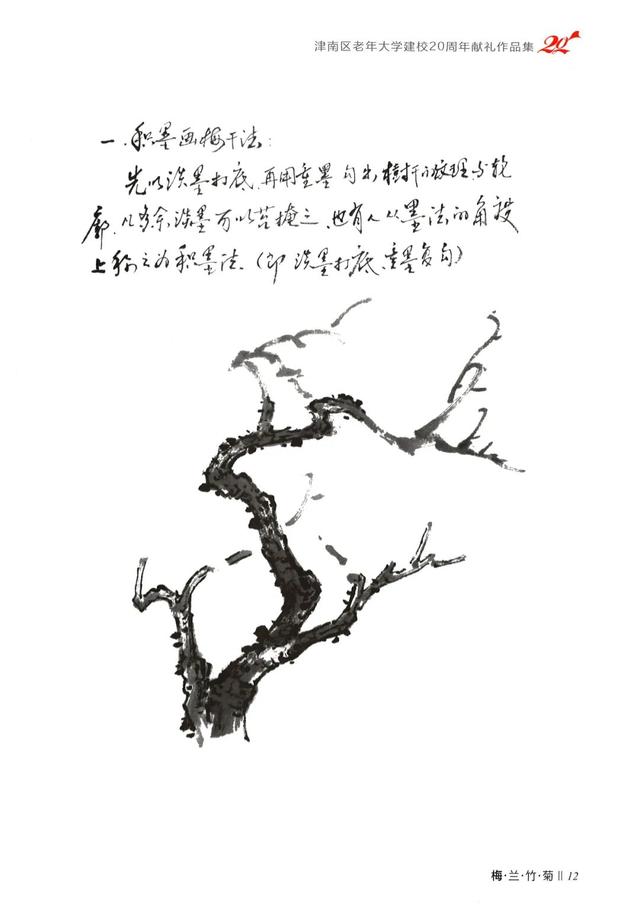 津南区老年大学建校20周年献礼作品集 20
一.积墨画梅干法:
先以淡墨打底,再用重墨勾出樹干的纹理与轮
廓.几多余淡墨可以苔掩之,也有人从墨法的角度
上称之为积墨法.(即淡墨打底,重墨复勾)
梅·兰·竹·菊 || 12